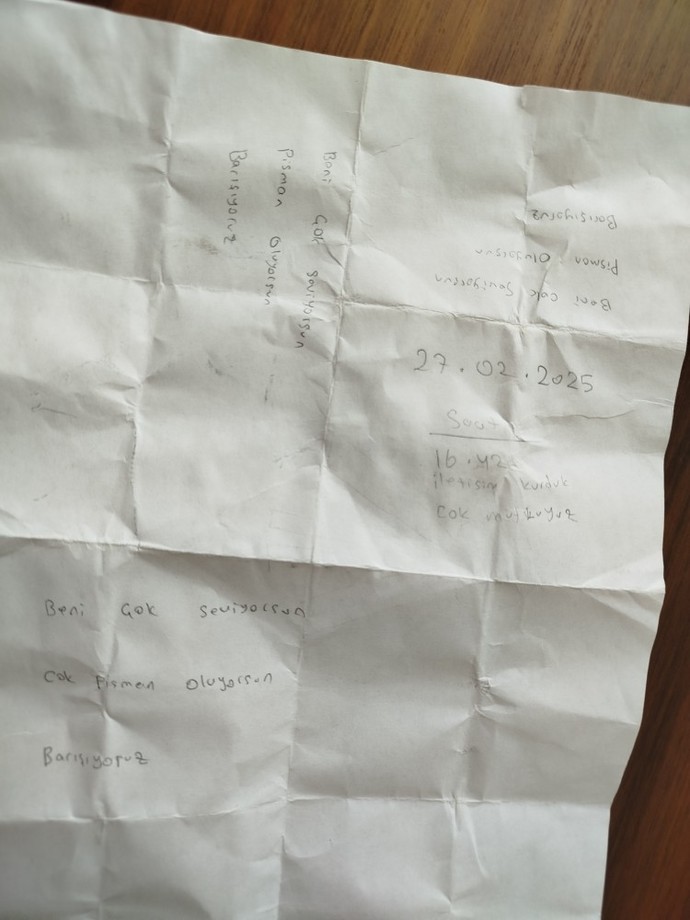 Beni Çok Seviyorsun
Pisman Oluyorsun
Barısıyoruz
Beni Cok Seviyorsun
Pisman Oluyorsun
Barısıyoruz
27.02.2025
Saat
16.42
iletisim kurduk
Cok mutluyuz
Beni Çok Seviyorsun
Cok Pisman Oluyorsun
Barısıyoruz